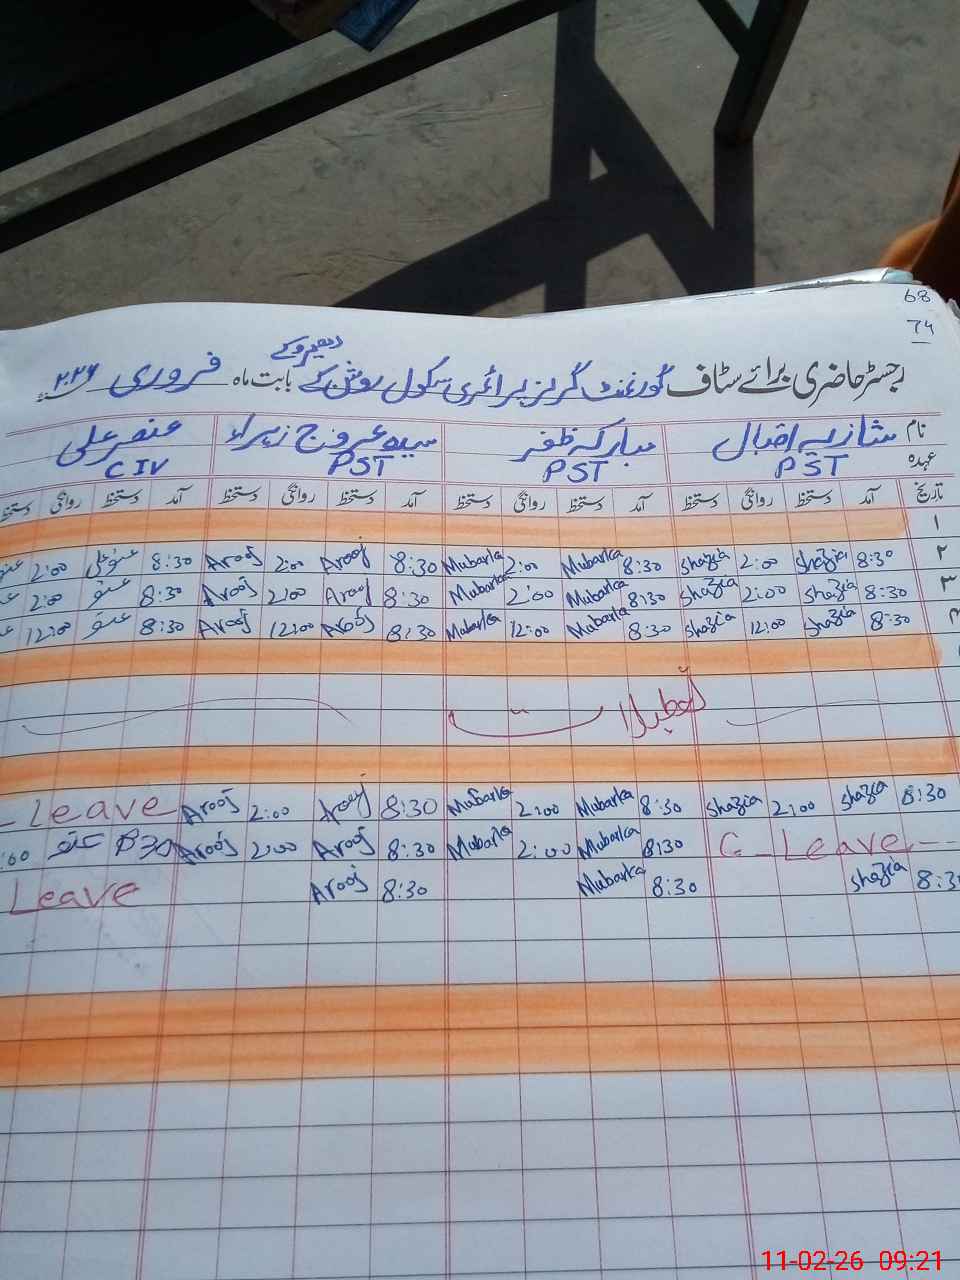 68
74
دھیروکے
رجسٹر حاضری برائے سٹاف گورنمنٹ گرلز پرائمری سکول روشن کے بابت ماہ فروری ۲۰۲۶ء
نام شازیہ اقبال مبارکہ ظفر سیدہ عروج زہراء عنصر علی
عہدہ PST PST PST CIV
تاریخ آمد دستخط روانگی دستخط آمد دستخط روانگی دستخط آمد دستخط روانگی دستخط آمد دستخط روانگی دستخط
۱
۲ 8:30 Shazia 2:00 Shazia 8:30 Mubarka 2:00 Mubarka 8:30 Arooj 2:00 Arooj 8:30 عنصر علی 2:00
۳ 8:30 Shazia 2:00 Shazia 8:30 Mubarka 2:00 Mubarka 8:30 Arooj 2:00 Arooj 8:30 عنصر 2:00
۴ 8:30 Shazia 12:00 Shazia 8:30 Mubarka 12:00 Mubarka 8:30 Arooj 12:00 Arooj 8:30 عنصر 12:00
تعطیلات
8:30 Shazia 2:00 Shazia 8:30 Mubarka 2:00 Mubarka 8:30 Arooj 2:00 Arooj - Leave
C - Leave - - 8:30 Mubarka 2:00 Mubarka 8:30 Arooj 2:00 Arooj 8:30 عنصر :00
8:30 Shazia 8:30 Mubarka 8:30 Arooj Leave
11-02-26 09:21